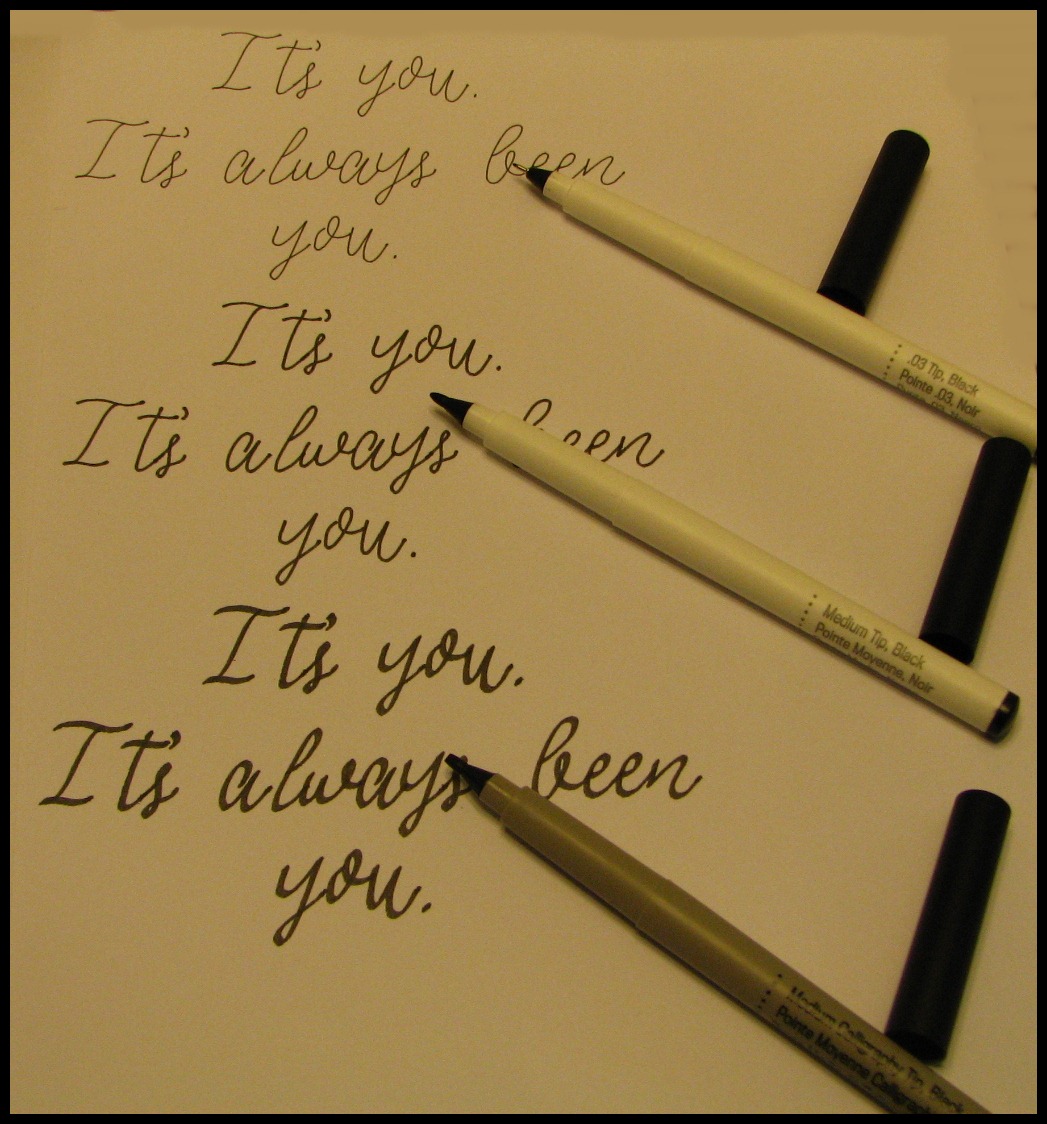 It's you.
It's always been
you.
.03 Tip, Black
Pointe .03, Noir
It's you.
It's always been
you.
Medium Tip, Black
Pointe Moyenne, Noir
It's you.
It's always been
you.
Medium Calligraphy Tip, Black
Pointe Moyenne